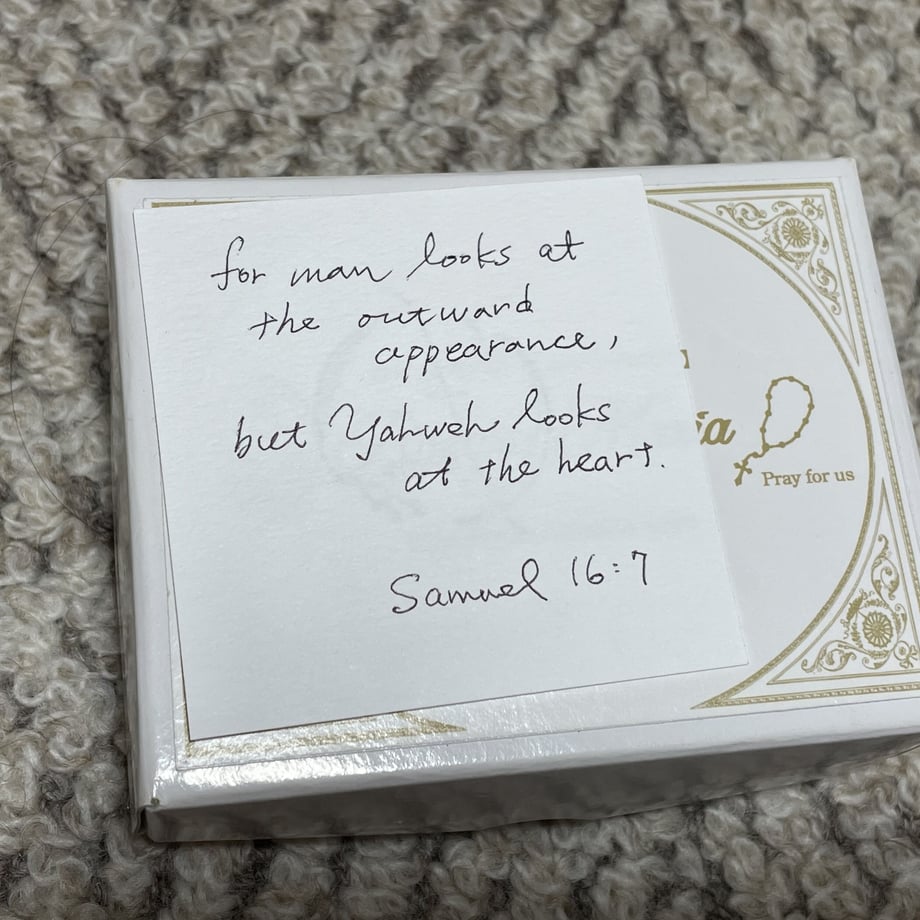 for man looks at
the outward
appearance,
but Yahweh looks
at the heart.
Samuel 16:7
Pray for us